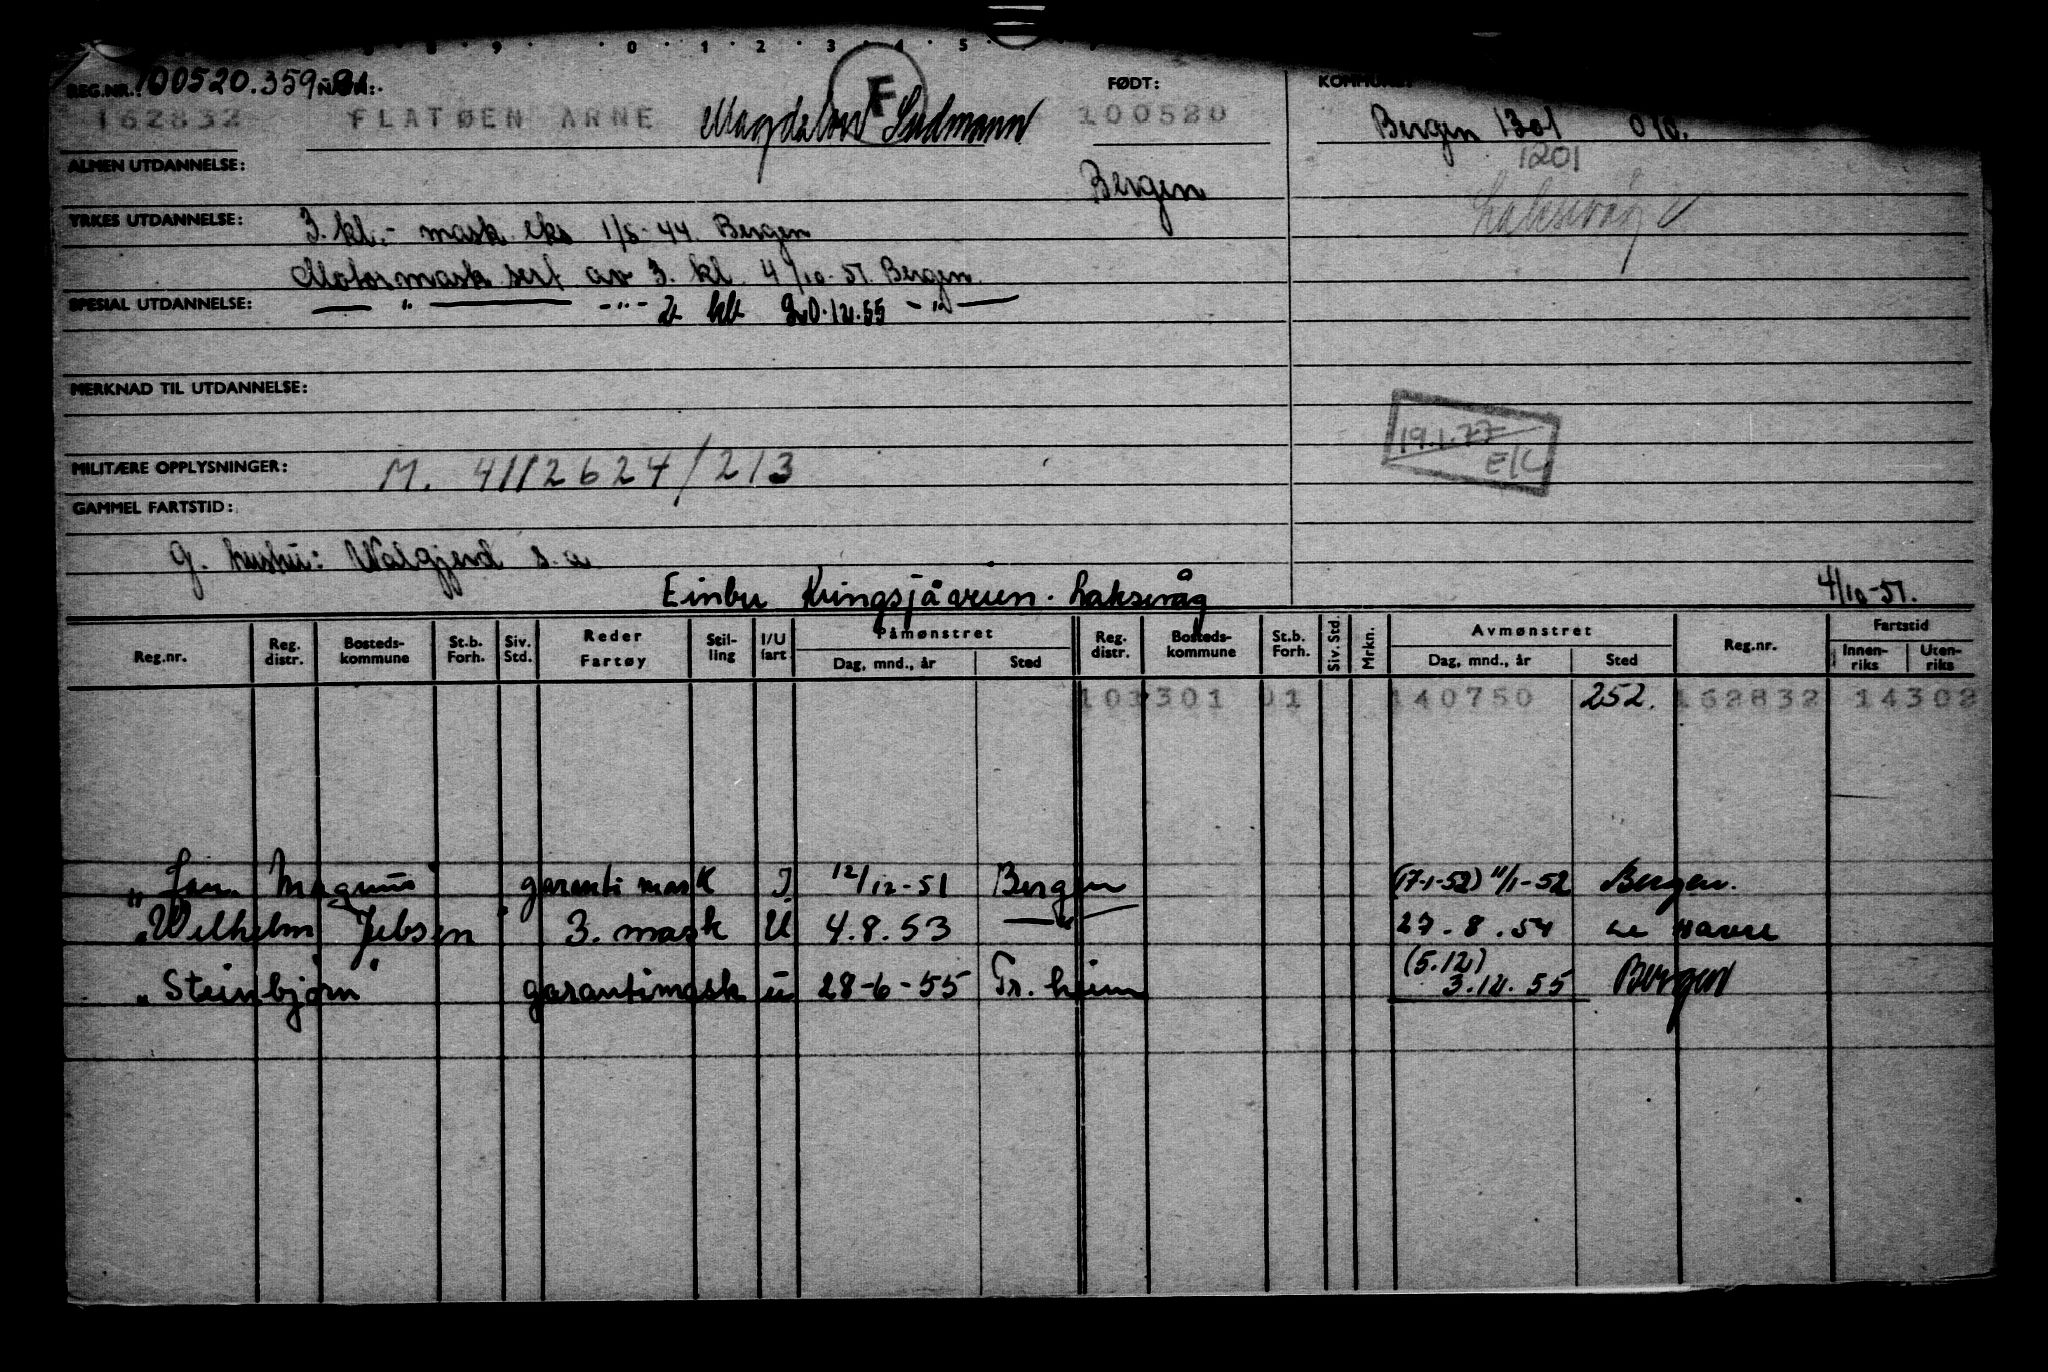 8 · 9 · · 0 · 1 · 2 · 3 · 4 · 5
REG.NR.: 100520.359 NAVN: FØDT: KOMMUNE:
162832 FLATØEN ARNE F 100520 Bergen 1301 010.
1201
ALMEN UTDANNELSE: Bergen
Laksevåg
YRKES UTDANNELSE: 3. kl.- mask eks 1/6-44. Bergen
Motormask sert av 3. kl. 4/10-51. Bergen.
SPESIAL UTDANNELSE: — " — -"- 2 kl 20.12.55 -"-
MERKNAD TIL UTDANNELSE:
19.1.77
MILITÆRE OPPLYSNINGER: M. 4112624/213
GAMMEL FARTSTID:
g. hustru: Walgjerd s.a
Einbu Kringsjåveien. Laksevåg 4/10-51.
Reg.nr. Reg. distr. Bosteds-kommune St.b. Forh. Siv. Std. Reder Fartøy Stil-ling I/U fart Påmønstret Dag, mnd., år Sted Reg. distr. Bosteds-kommune St.b. Forh. Siv. Std. Mrkn. Avmønstret Dag, mnd., år Sted Reg.nr. Fartstid Innen-riks Uten-riks
101301 01 140750 252. 162832 14302
" Jan Magnus garanti mask I 12/12-51 Bergen (17-1-52) 11/1-52 Bergen.
" Wilhelm Jebsen " 3. mask U 4.8.53 — " — 27.8.54 Le Havre
" Steinbjørn " garantimask U 28-6-55 Tr.heim (5.12) 3.12.55 Bergen